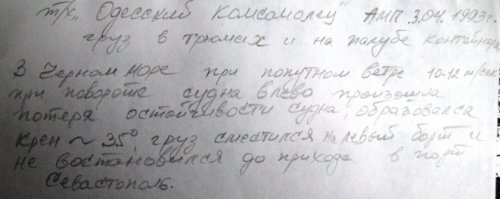 т/х „Одесский Комсомолец" АМП 3.04.
груз в трюмах и на палубе контейнер
В Черном море при попутном ветре 10-12 м/сек
при повороте судна влево произошла
потеря остойчивости судна, образовался
крен ~ 35° груз сместился на левый борт и
не востановился до прихода в порт
Севастополь.